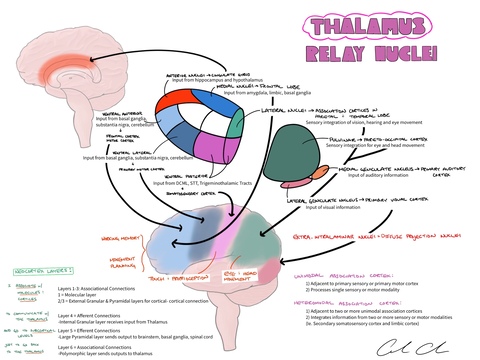 THALAMUS
RELAY NUCLEI
ANTERIOR NUCLEI → CINGULATE GYRUS
Input from hippocampus and hypothalamus
MEDIAL NUCLEUS → FRONTAL LOBE
Input from amygdala, limbic, basal ganglia
LATERAL NUCLEUS → ASSOCIATION CORTICES IN
PARIETAL + TEMPORAL LOBE
Sensory integration of vision, hearing and eye movement
VENTRAL ANTERIOR
Input from basal ganglia,
substantia nigra, cerebellum
FRONTAL CORTEX
MOTOR CORTEX
VENTRAL LATERAL
Input from basal ganglia, substantia nigra, cerebellum
PRIMARY MOTOR CORTEX
VENTRAL POSTERIOR
Input from DCML, STT, Trigeminothalamic Tracts
SOMATOSENSORY CORTEX
PULVINAR → PARIETO-OCCIPITAL CORTEX
Sensory integration for eye and head movement
MEDIAL GENICULATE NUCLEUS → PRIMARY AUDITORY
CORTEX
Input of auditory information
LATERAL GENICULATE NUCLEUS → PRIMARY VISUAL CORTEX
Input of visual information
WORKING MEMORY
MOVEMENT
PLANNING
TOUCH + PROPRIOCEPTION
EYE + HEAD
MOVEMENT
EXTRA: INTRALAMINAR NUCLEI → DIFFUSE PROJECTION NUCLEI
NEOCORTEX LAYERS:
I ASSOCIATE W/
MOLECULES +
CORTICES
Layers 1-3: Associated Connections
1 = Molecular layer
2/3 = External Granular & Pyramidal layers for cortical- cortical connection
I COMMUNICATE W/
THE THALAMUS
Layer 4 = Afferent Connections
-Internal Granular layer receives input from Thalamus
AND GO TO SUBCORTICAL
LEVELS
Layer 5 = Efferent Connections
-Large Pyramidal layer sends output to brainstem, basal ganglia, spinal cord
THE THALAMUS
Layer 6 = Associational Connections
-Polymorphic layer sends outputs to thalamus
UNIMODAL ASSOCIATION CORTEX:
1) Adjacent to primary sensory or primary motor cortex
2) Processes single sensory or motor modality
HETEROMODAL ASSOCIATION CORTEX:
1) Adjacent to two or more unimodal association cortices
2) Integrates information from two or more sensory or motor modalities
(Ex. Secondary somatosensory cortex and limbic cortex)